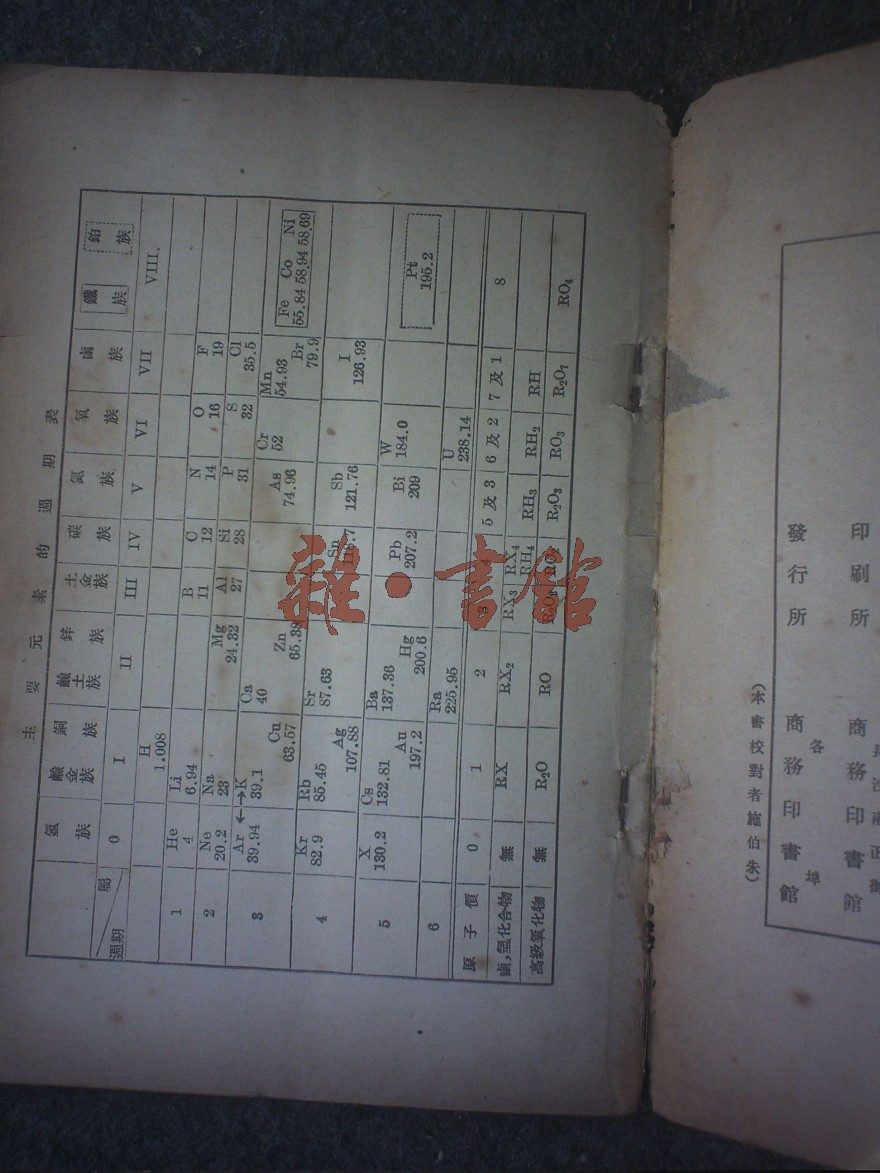 主要元素的週期表
氬族 鹼金族 銅族 鹼土族 鋅族 土金族 碳族 氮族 氧族 鹵族 鐵族 鉑族
週期 屬 0 I II III IV V VI VII VIII.
H
1.008
1 He Li B C N O F
4 6.94 11 12 14 16 19
2 Ne Na Mg Al Si P S Cl
20.2 23 24.32 27 28 31 32 35.5
3 Ar ←→K Ca Cr Mn Fe Co Ni
39.94 39.1 40 52 54.93 55.84 58.94 58.69
Cu Zn As Br
63.57 65.38 74.96 79.9
4 Kr Rb Sr
82.9 85.45 87.63
Ag Sn Sb I
107.88 121.76 126.93
5 X Cs Ba W Pt
130.2 132.81 137.36 184.0 195.2
Au Hg Pb Bi
197.2 200.6 207.2 209
6 Ra U
225.95 238.14
原子價 0 1 2 3 5及3 6及2 7及1 8
鹵,氫化合物 無 RX RX₂ RX₃ RX₄ RH₄ RH₃ RH₂ RH
高級氧化物 無 R₂O RO R₂O₃ RO₃ R₂O₇ RO₄
(本書校對者施伯朱)
發行所 商務印書館
各埠
印刷所 商務印書館